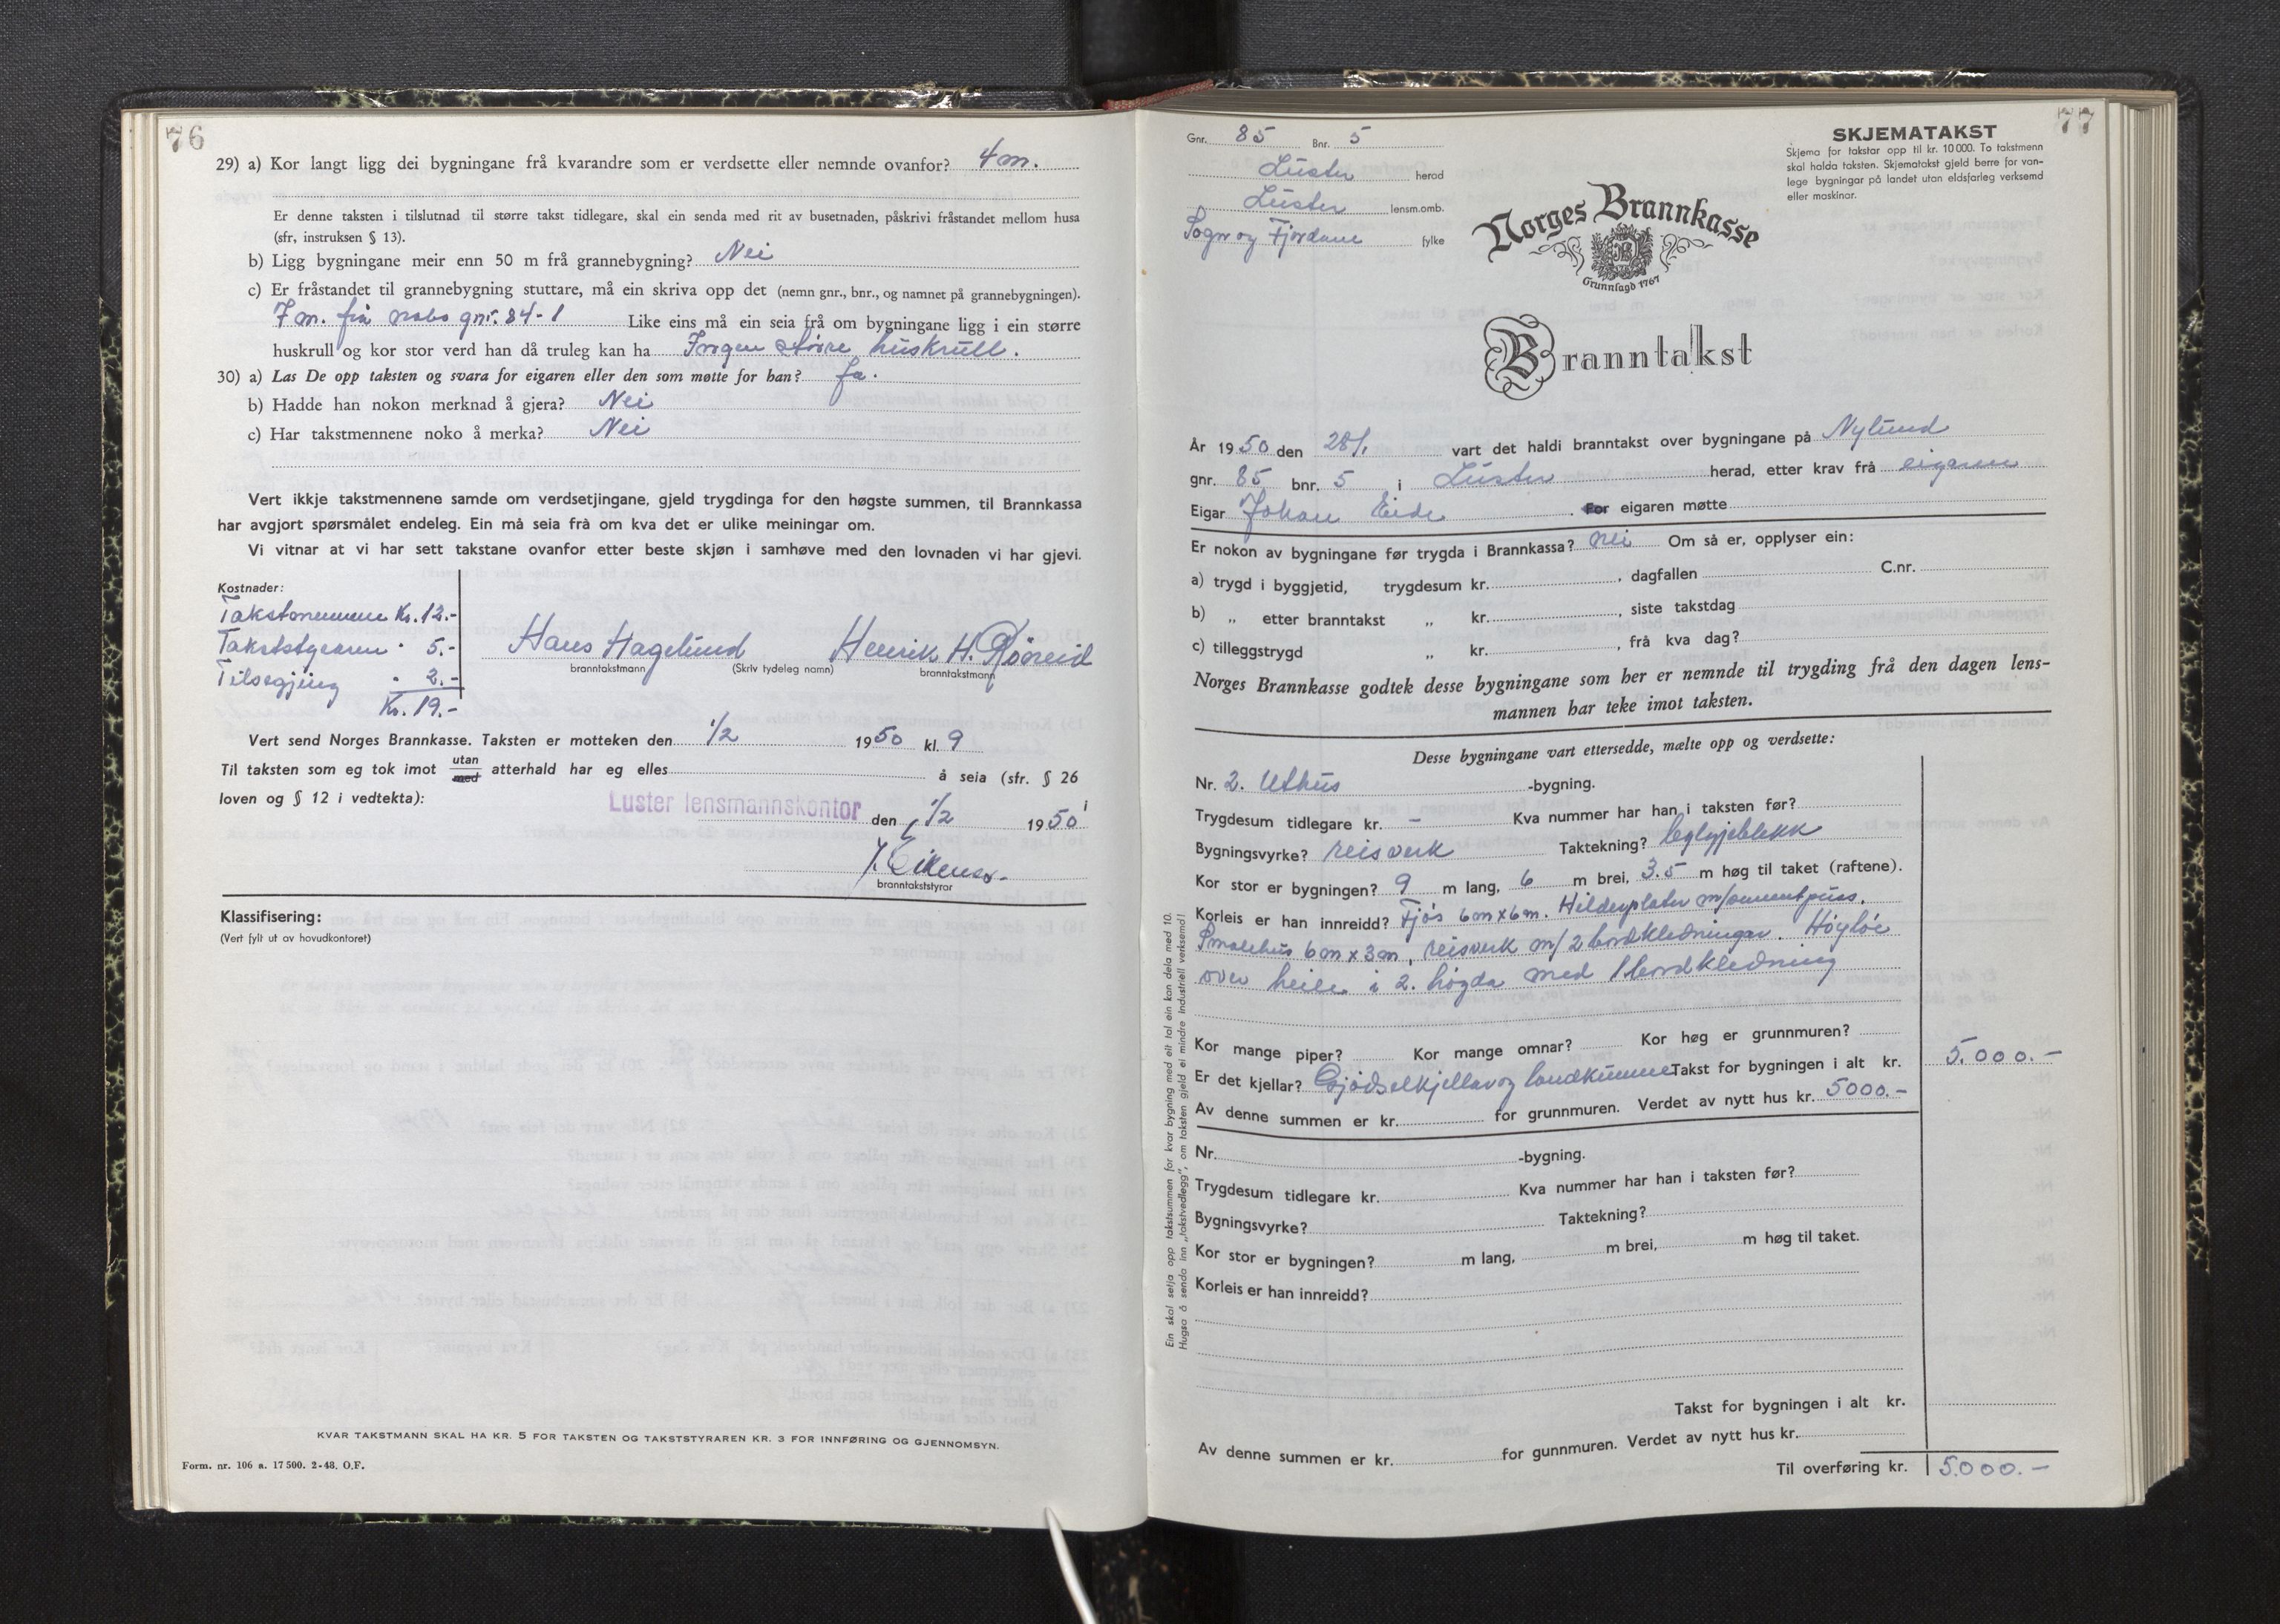 76
29) a) Kor langt ligg dei bygningane frå kvarandre som er verdsette eller nemnde ovanfor? 4 m.
Er denne taksten i tilslutnad til større takst tidlegare, skal ein senda med rit av busetnaden, påskrivi fråstandet mellom husa
(sfr, instruksen § 13).
b) Ligg bygningane meir enn 50 m frå grannebygning? Nei
c) Er fråstandet til grannebygning stuttare, må ein skriva opp det (nemn gnr., bnr., og namnet på grannebygningen).
7 m. frå nabo gnr. 84-1 Like eins må ein seia frå om bygningane ligg i ein større
huskrull og kor stor verd han då truleg kan ha Ingen større huskrull.
30) a) Las De opp taksten og svara for eigaren eller den som møtte for han? Ja.
b) Hadde han nokon merknad å gjera? Nei
c) Har takstmennene noko å merka? Nei
Vert ikkje takstmennene samde om verdsetjingane, gjeld trygdinga for den høgste summen, til Brannkassa
har avgjort spørsmålet endeleg. Ein må seia frå om kva det er ulike meiningar om.
Vi vitnar at vi har sett takstane ovanfor etter beste skjøn i samhøve med den lovnaden vi har gjevi.
Kostnader:
Takstmennene Kr. 12.-
Takststyraren " 5.-
Tilsegjing " 2.-
Kr. 19.-
Hans Hagelund Henrik H. Røneid
branntakstmann (Skriv tydeleg namn) branntakstmann
Vert send Norges Brannkasse. Taksten er motteken den 1/2 1950 kl. 9
Til taksten som eg tok imot utan med atterhald har eg elles å seia (sfr. § 26
loven og § 12 i vedtekta):
Luster lensmannskontor den 1/2 1950
branntakststyrar
Klassifisering:
(Vert fylt ut av hovudkontoret)
KVAR TAKSTMANN SKAL HA KR. 5 FOR TAKSTEN OG TAKSTSTYRAREN KR. 3 FOR INNFØRING OG GJENNOMSYN.
Form. nr. 106 a. 17 500. 2-48. O.F.
77
Gnr. 85 Bnr. 5
Luster herad
Luster lensm.omb.
Sogn og Fjordane fylke
SKJEMATAKST
Skjema for takstar opp til kr. 10 000. To takstmenn
skal halda taksten. Skjematakst gjeld berre for van-
lege bygningar på landet utan eldsfarleg verksemd
eller maskinar.
Norges Brannkasse
Grunnlagd 1767
Branntakst
År 1950 den 28/1. vart det haldi branntakst over bygningane på Nylund
gnr. 85 bnr. 5 i Luster herad, etter krav frå eigaren
Eigar Johan Eide . For eigaren møtte
Er nokon av bygningane før trygda i Brannkassa? Nei Om så er, opplyser ein:
a) trygd i byggjetid, trygdesum kr. , dagfallen C.nr.
b) „ etter branntakst „ kr. , siste takstdag
c) tilleggstrygd „ kr. , frå kva dag?
Norges Brannkasse godtek desse bygningane som her er nemnde til trygding frå den dagen lens-
mannen har teke imot taksten.
Desse bygningane vart ettersedde, mælte opp og verdsette:
Nr. 2. Uthus -bygning.
Trygdesum tidlegare kr. - Kva nummer har han i taksten før?
Bygningsvyrke? reisverk Taktekning?
Kor stor er bygningen? 9 m lang, 6 m brei, 3.5 m høg til taket (raftene).
Korleis er han innreidd? Fjøs 6m x 6m. m/sementpuss.
Smalehus 6m x 3m, reisverk m/ 2 bordkledningar. Høyløe
over heile i 2. høgda med 1 bordkledning
Kor mange piper? Kor mange omnar? Kor høg er grunnmuren?
Er det kjellar? Gjødselkjellar og landkumme Takst for bygningen i alt kr. 5.000.-
Av denne summen er kr. for grunnmuren. Verdet av nytt hus kr. 5000.-
Nr. -bygning.
Trygdesum tidlegare kr. Kva nummer har han i taksten før?
Bygningsvyrke? Taktekning?
Kor stor er bygningen? m lang, m brei, m høg til taket.
Korleis er han innreidd?
Takst for bygningen i alt kr.
Av denne summen er kr. for gunnmuren. Verdet av nytt hus kr.
Til overføring kr. 5.000.-
Ein skal setja opp takstsummen for kvar bygning med eit tal ein kan dela med 10.
Hugsa å senda inn „takstvedlegg", om taksten gjeld ei mindre industriell verksemd!